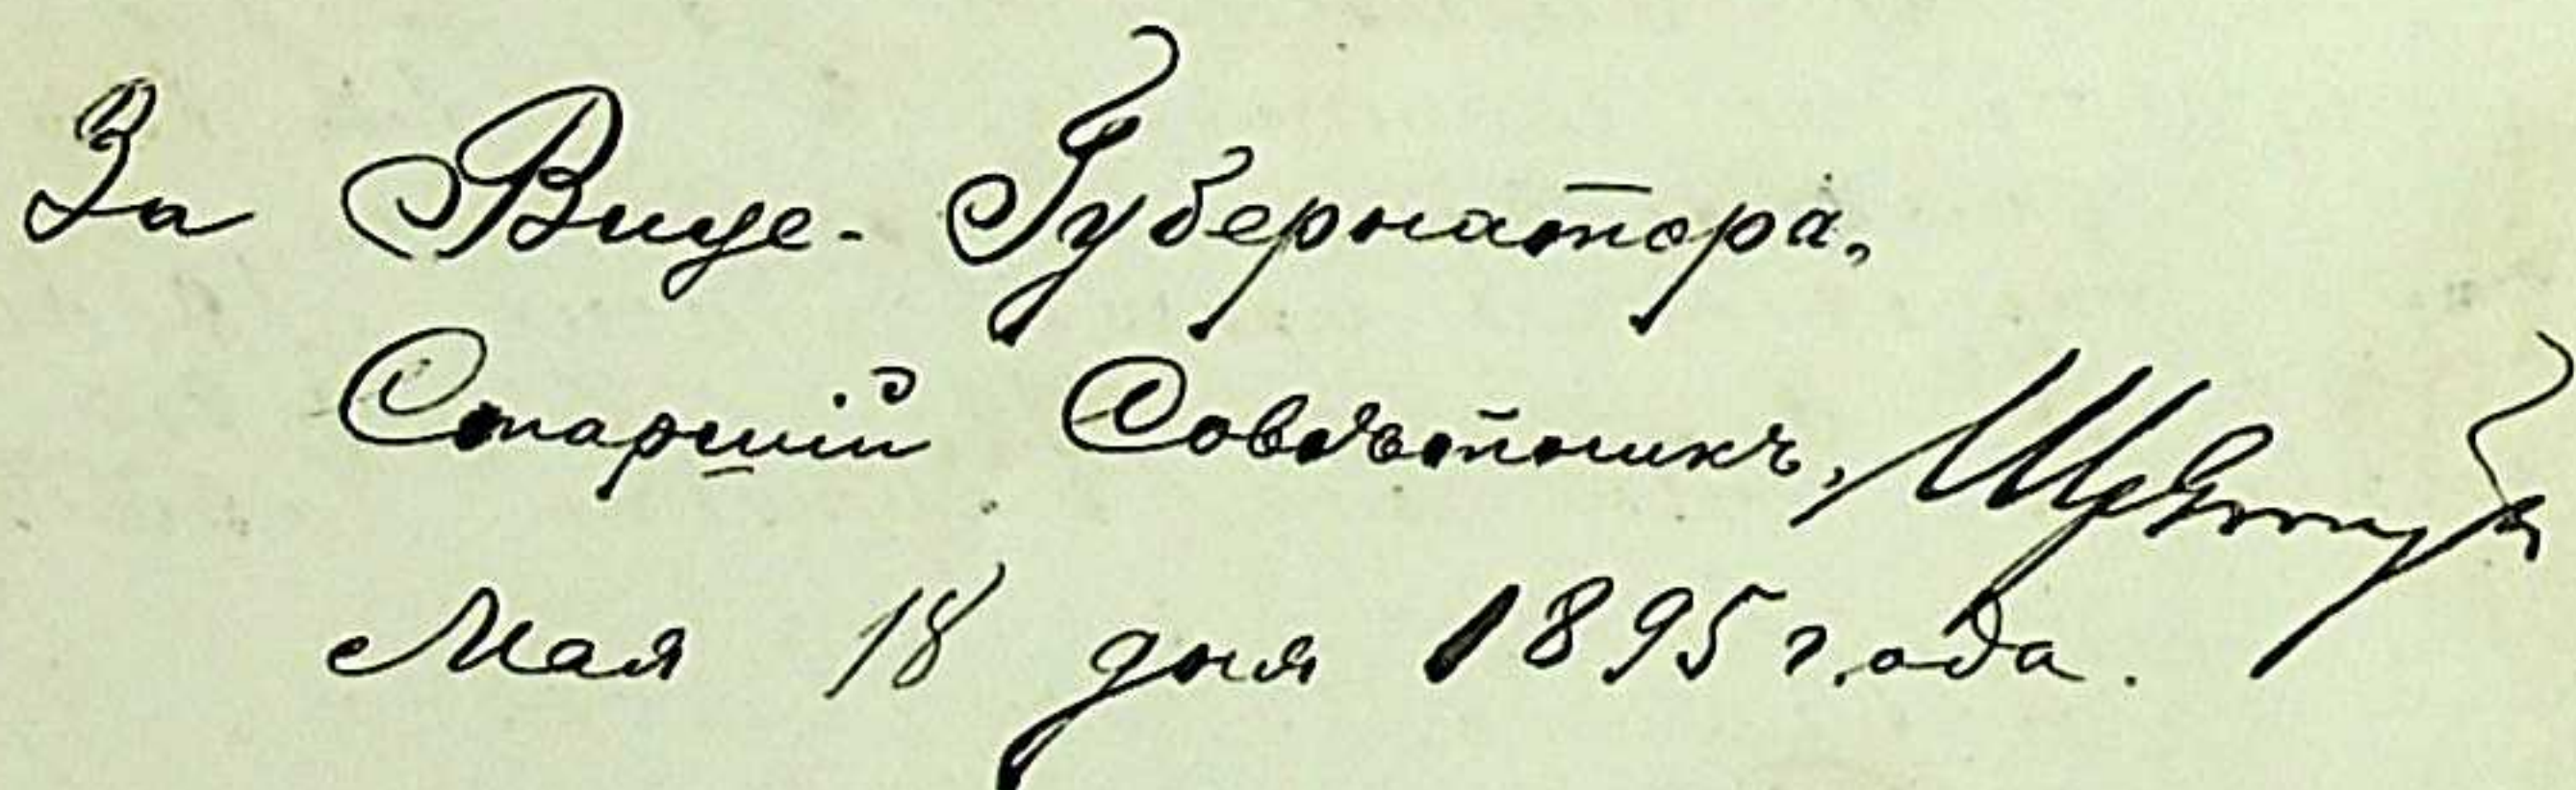 За Вице-Губернатора,
Старшій Совѣтникъ,
Мая 18 дня 1895 года.